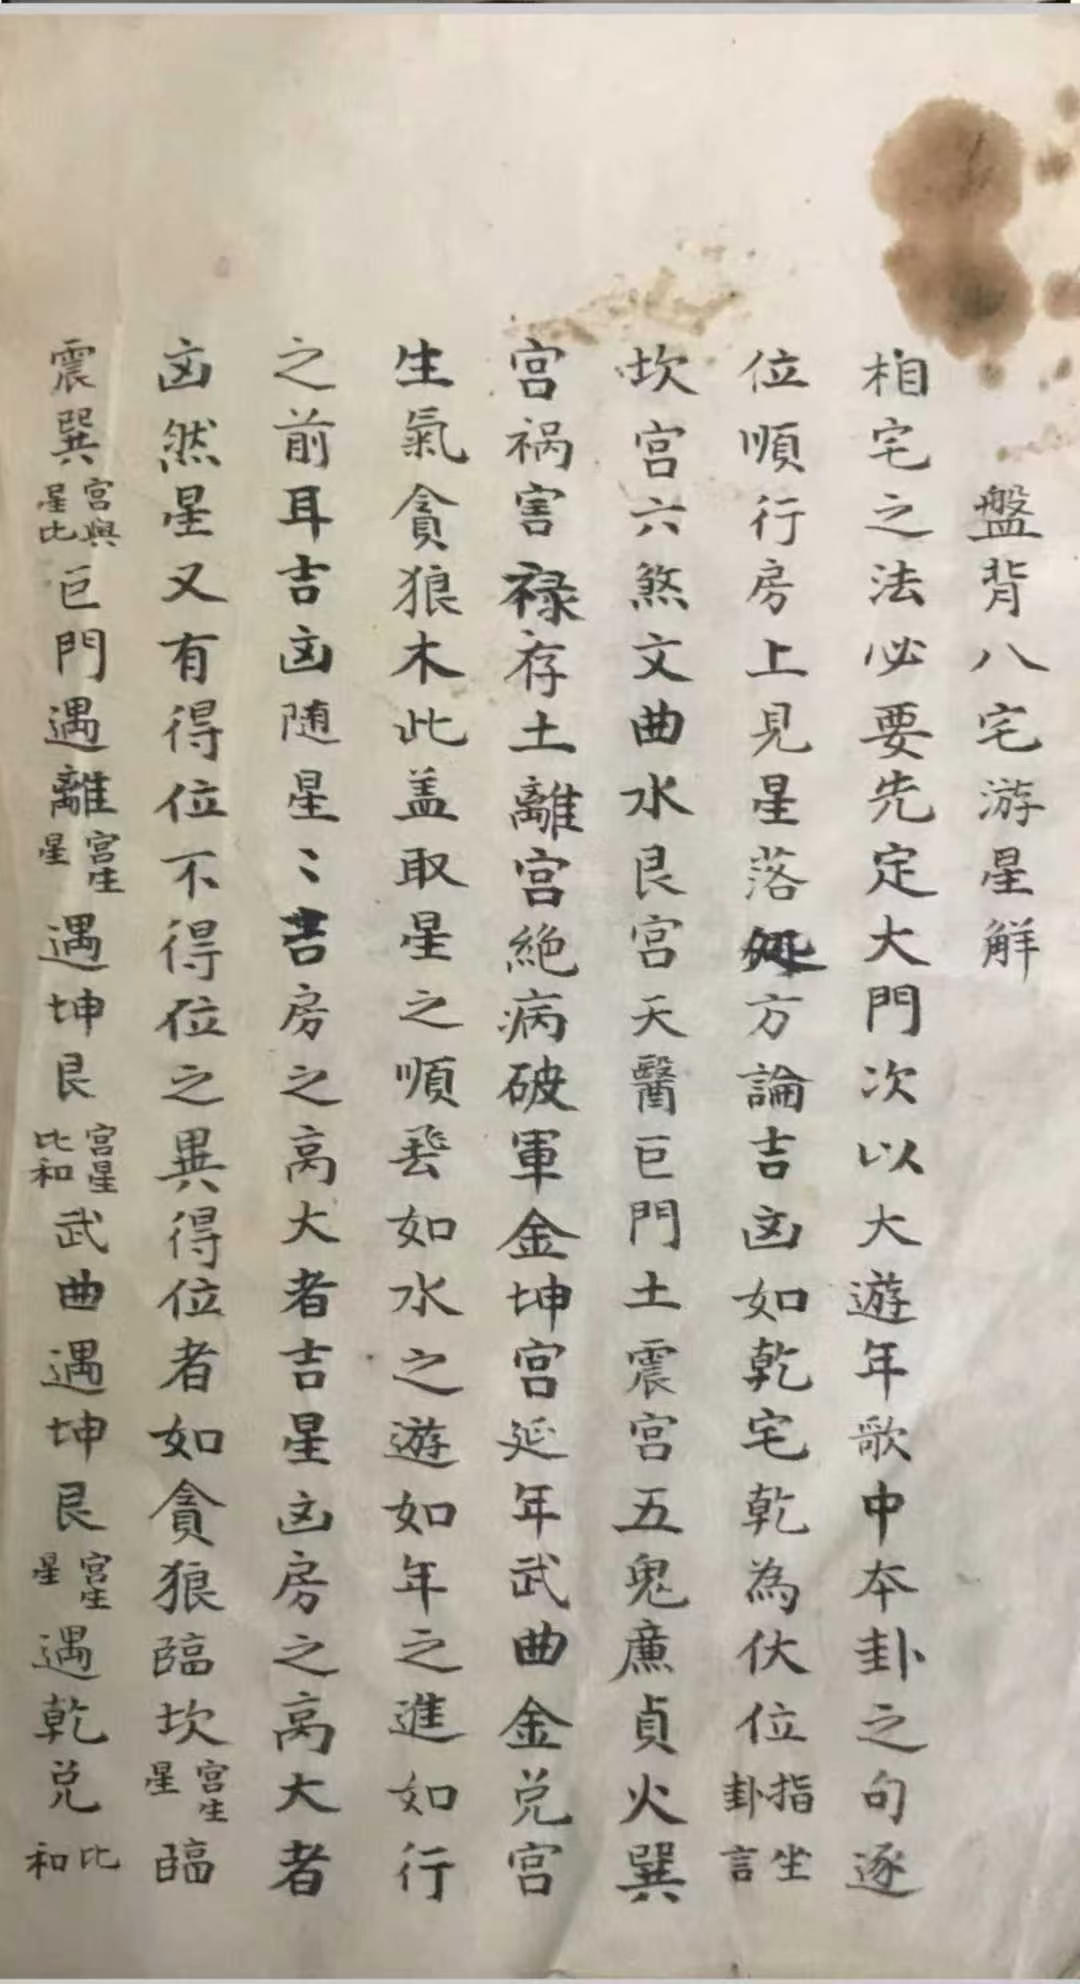 盤背八宅游星觧
相宅之法必要先定大門次以大遊年歌中本卦之句逐
位順行房上見星落処方論吉凶如乾宅乾為伏位指坐卦言
坎宮六煞文曲水艮宮天醫巨門土震宮五鬼廉貞火巽
宮祸害禄存土離宮絕病破軍金坤宮延年武曲金兑宮
生氣貪狼木此盖取星之順飛如水之遊如年之進如行
之前耳吉凶随星〻吉房之高大者吉星凶房之高大者
凶然星又有得位不得位之異得位者如貪狼臨坎宮生星臨
震巽宮與星比巨門遇離宮生星遇坤艮宮星比和武曲遇坤艮宮生星遇乾兑比和